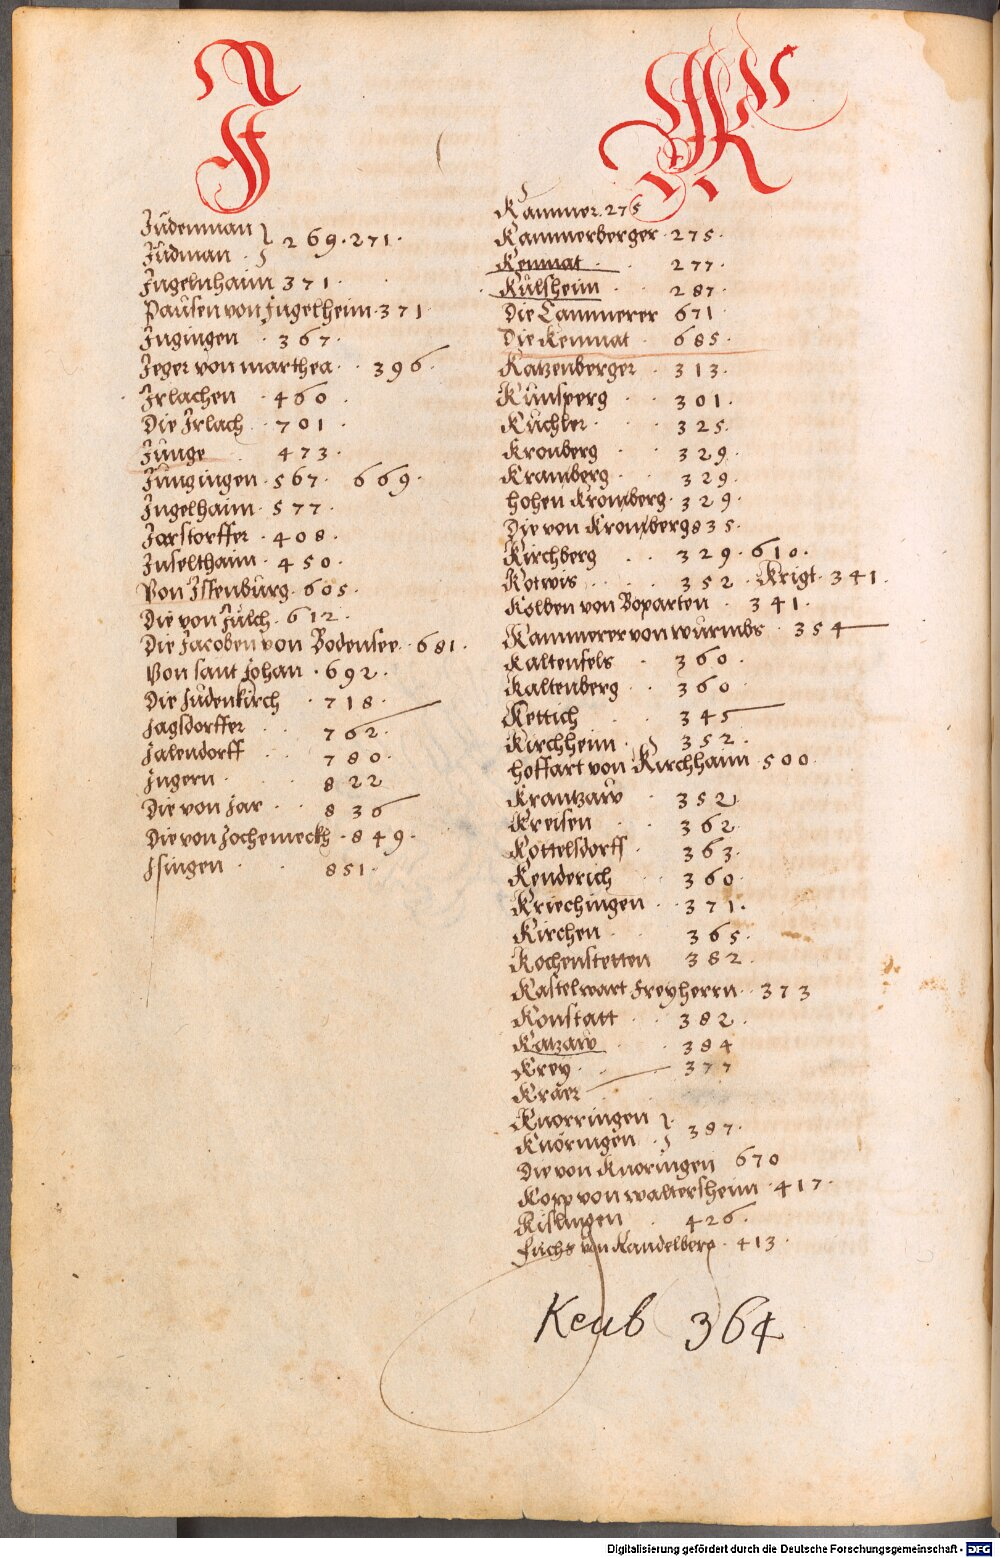 J
Jüdenman
Jüdman } 269 · 271 ·
Ingelnhaim 371 ·
Pausen von Ingelheim · 371
Ingingen · 367 ·
Jeger von marthea · · 396 ·
Irlachen · 460 ·
Die Irlach · 701 ·
Junge 473 ·
Jungingen · 567 · 669 ·
Ingelhaim · 577 ·
Jarstorffer · 408 ·
Inselthaim · 450 ·
Von Isenburg · 605 ·
Die von Jülch · 612 ·
Die Jacoben von Bodensee · 681 ·
Von sant Johan · 692 ·
Die Judenkirch · 718 ·
Jagsdorffer · 762 ·
Jalendorff · 780 ·
Ingern · 822
Die von Jar · · 836
Die von Jochemeckh · 849 ·
Isingen · · 851 ·
K
Kammer · 275
Kammerberger · 275 ·
Kemnat · · 277 ·
Külsheim · · 287 ·
Die Cammerer 671
Die Kemnat · 685 ·
Katzenberger · 313 ·
Künsperg · · 301 ·
Küchler · · 325 ·
Kronberg · · 329 ·
Kramberg · · 329 ·
hohen Kromberg · 329 ·
Die von Kromberg 835 ·
Kirchberg · · 329 · 610 ·
Kotwis · · 352 · Krigt · 341 ·
Kolben von Boparten · 341 ·
Kammerer von wurmbs · 354
Kaltenfels · 360 ·
Kaltenberg · · 360 ·
Kettich · 345
Kirchheim · 352 ·
hoffart von Kirchhaim · 500 ·
Krantzaw · 352 ·
Kreisen · · 362 ·
Kottelsdorff · 363 ·
Kenderich · · 360 ·
Kriechingen · · 371 ·
Kirchen · · 365 ·
Kochenstetten 382 ·
Kastelwart freyherrn · 373
Konstatt · · 382 ·
Katzaw · · 384
Krey · · 377
Kräer
Knorringen
Knöringen · } 387 ·
Die von Knoringen 670
Kopp von waltersheim · 417 ·
Kislingen · 426 ·
fuchs von Kandelberg · 413 ·
Keub 364
Digitalisierung gefördert durch die Deutsche Forschungsgemeinschaft - DFG